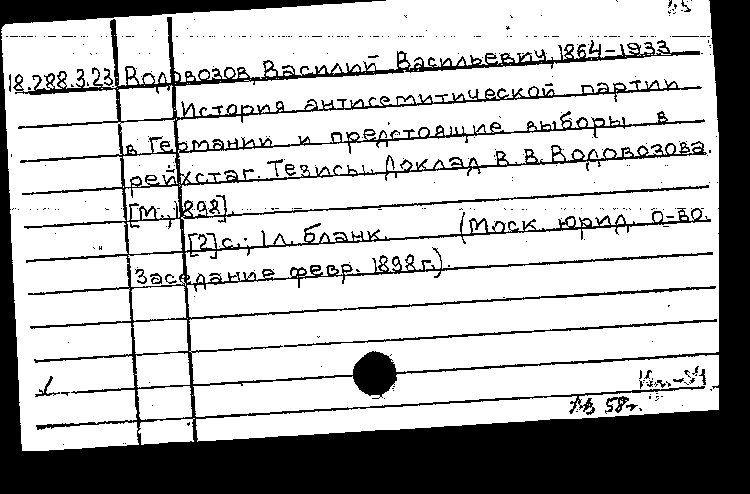 18.288.3.23 Водовозов, Василий Васильевич, 1864-1933
История антисемитической партии
в Германии и предстоящие выборы в
рейхстаг. Тезисы. Доклад В. В. Водовозова.
[М., 1898].
[2]с.; 1л. бланк. (Моск. юрид. о-во.
Заседание февр. 1898г.).
58г.